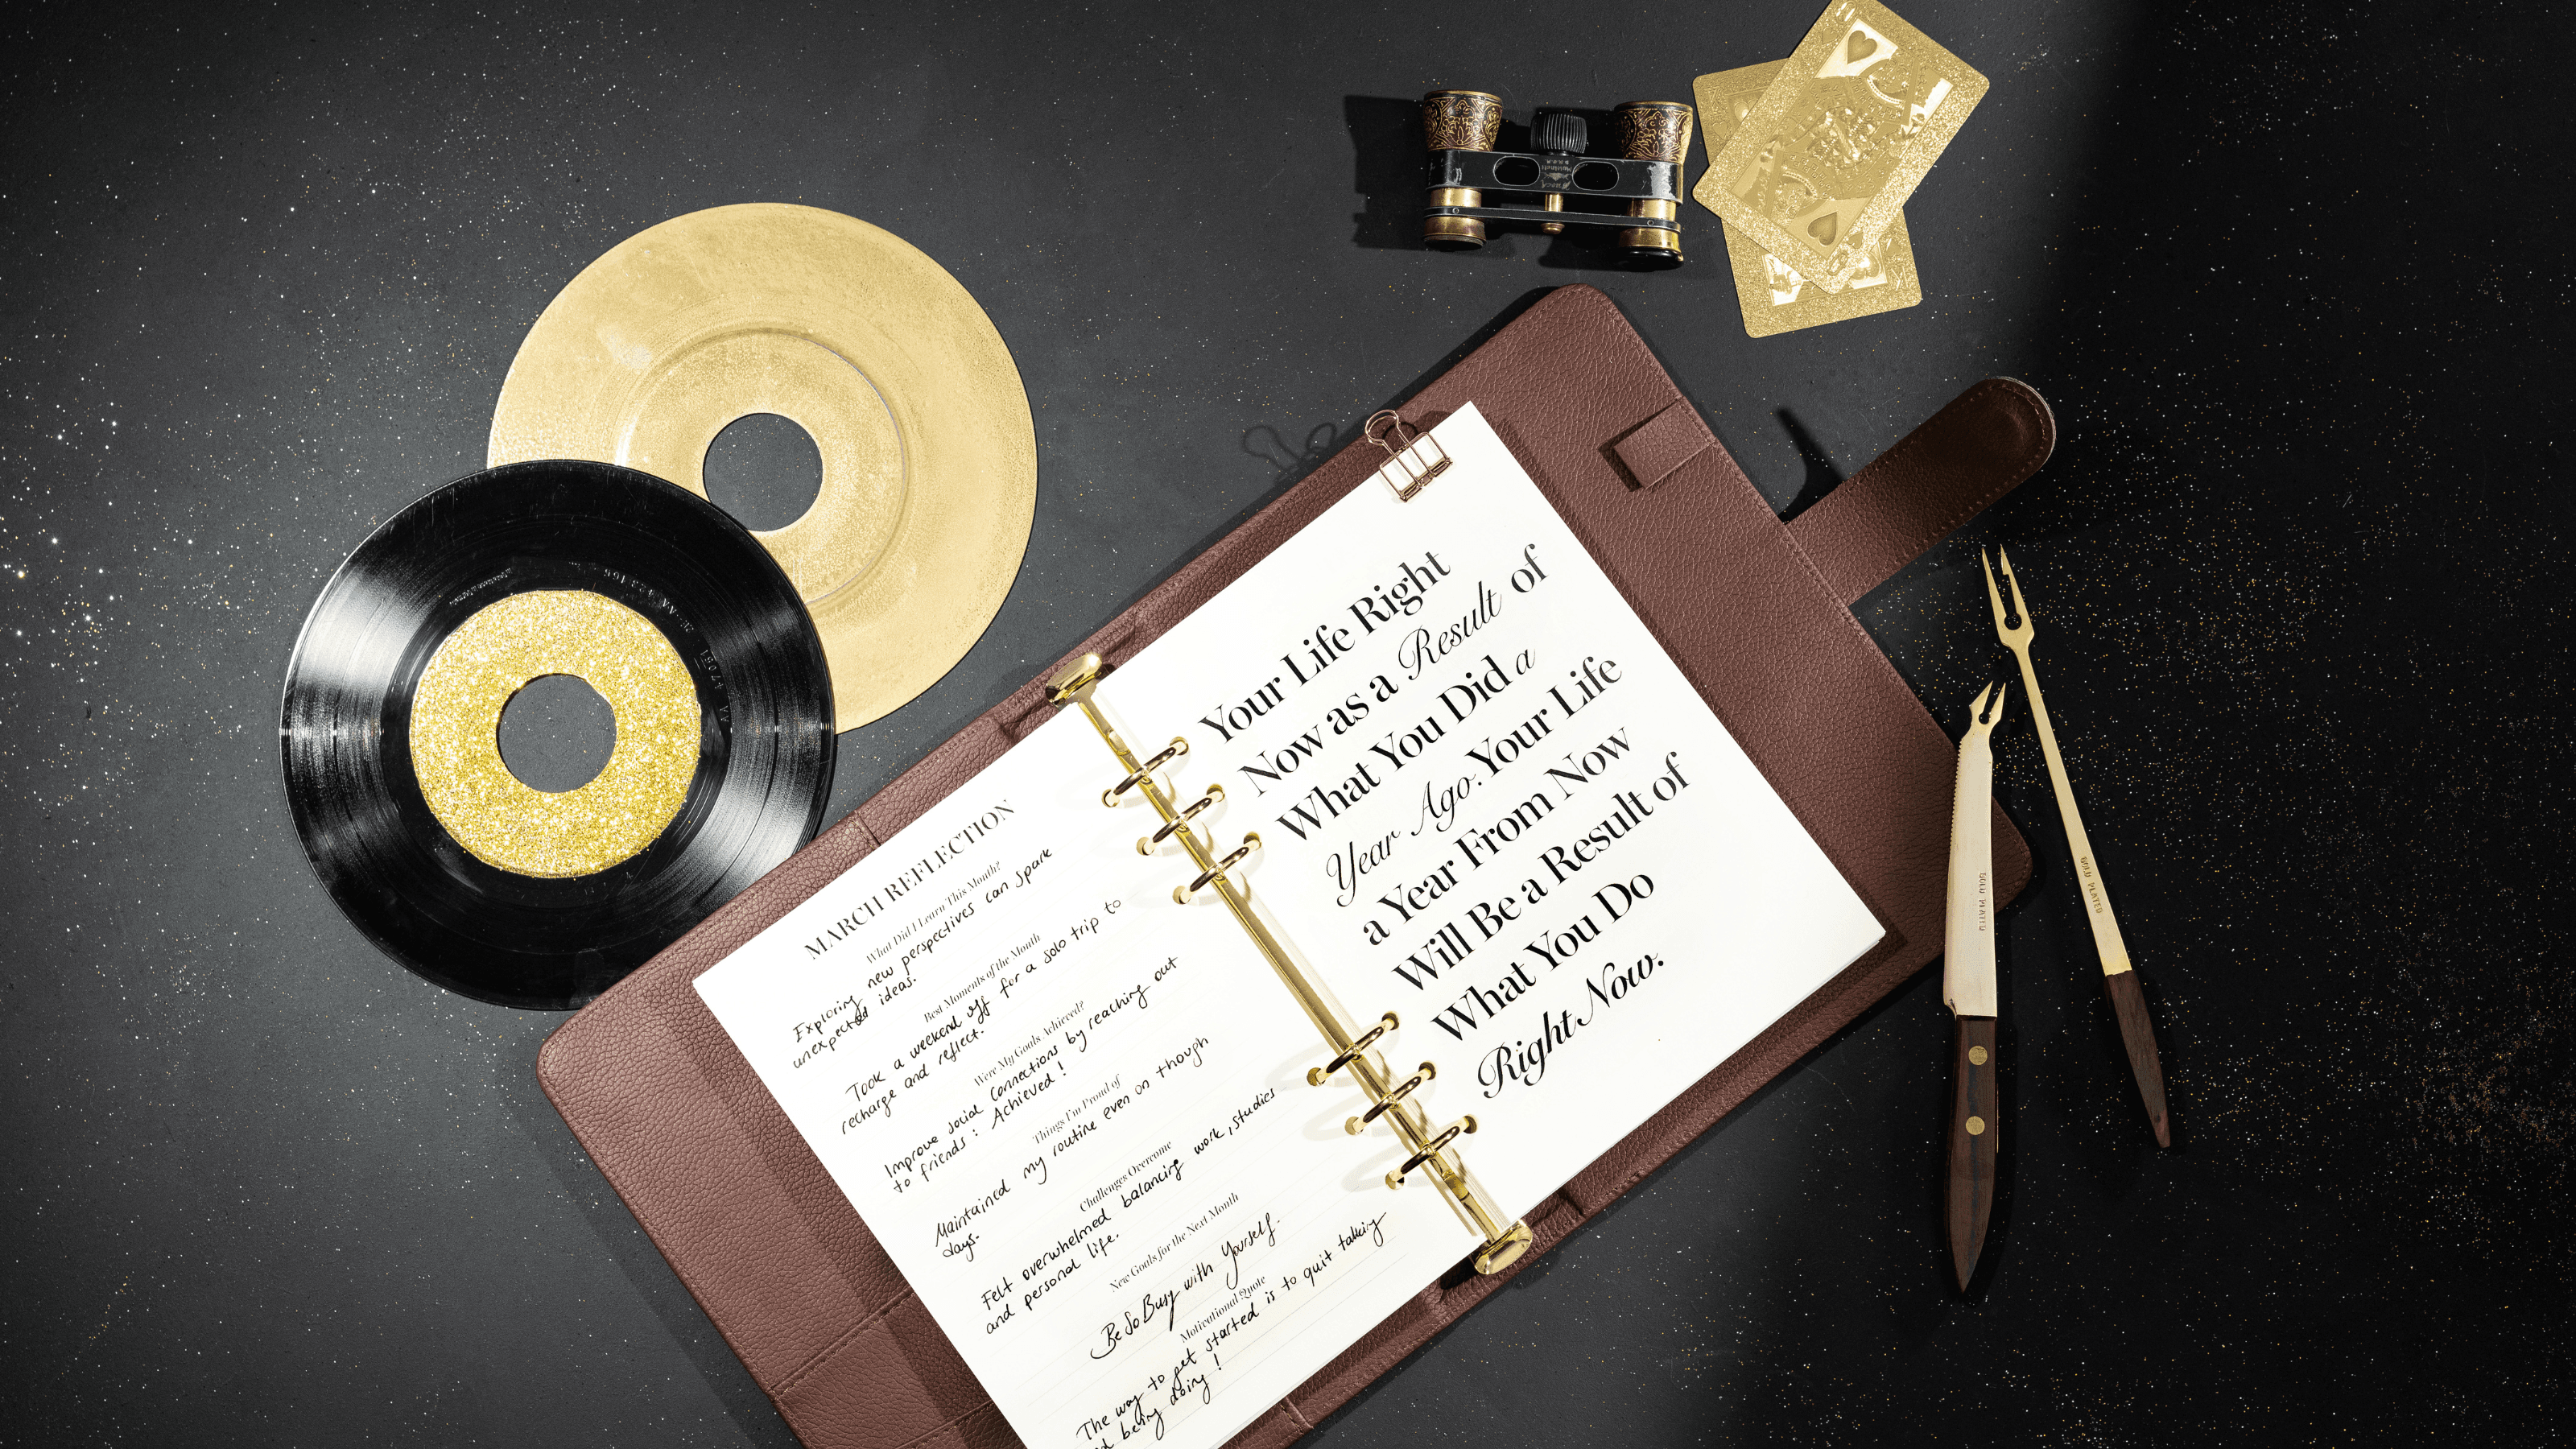 MARCH REFLECTION
What Did I Learn This Month?
Exploring new perspectives can spark
unexpected ideas.
Best Moments of the Month
Took a weekend off for a solo trip to
recharge and reflect.
Were My Goals Achieved?
Improve social connections by reaching out
to friends : Achieved !
Things I'm Proud of
Maintained my routine even on though
days.
Challenges Overcome
Felt overwhelmed balancing work, studies
and personal life.
New Goals for the Next Month
Be So Busy with Yourself.
Motivational Quote
The way to get started is to quit talking
being doing !
Your Life Right
Now as a Result of
What You Did a
Year Ago. Your Life
a Year From Now
Will Be a Result of
What You Do
Right Now.
GOLD PLATED
GOLD PLATED
K